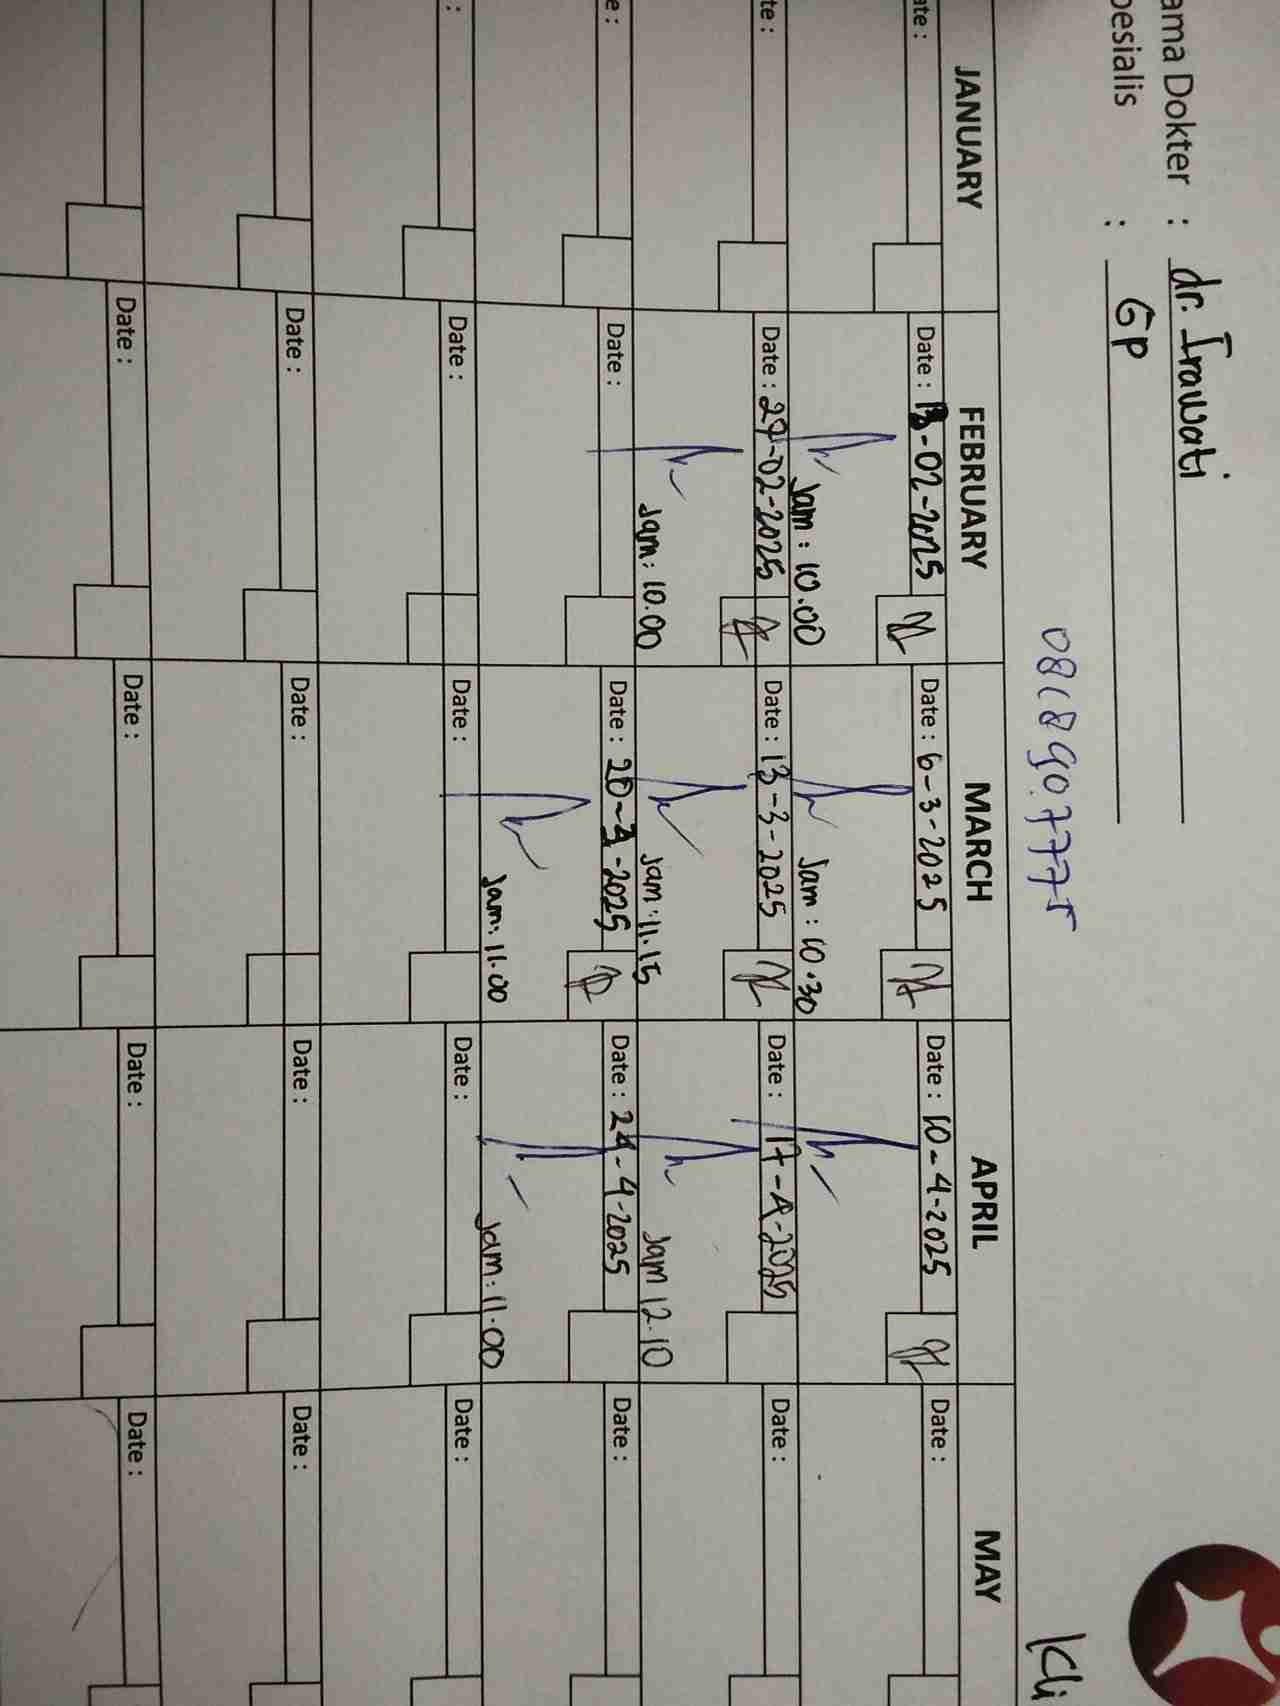 ama Dokter : dr. Irawati
pesialis : GP
0818907775
Kli
JANUARY FEBRUARY MARCH APRIL MAY
ate : Date : 13-02-2025 Date : 6-3-2025 Date : 10-4-2025 Date :
Jam : 10.00 Jam : 10.30
te : Date : 27-02-2025 Date : 13-3-2025 Date : 17-4-2025 Date :
Jam : 10.00 Jam : 11.15 Jam 12.10
e : Date : Date : 20-3-2025 Date : 24-4-2025 Date :
Jam : 11.00 Jam : 11.00
: Date : Date : Date : Date :
Date : Date : Date : Date :
Date : Date : Date : Date :